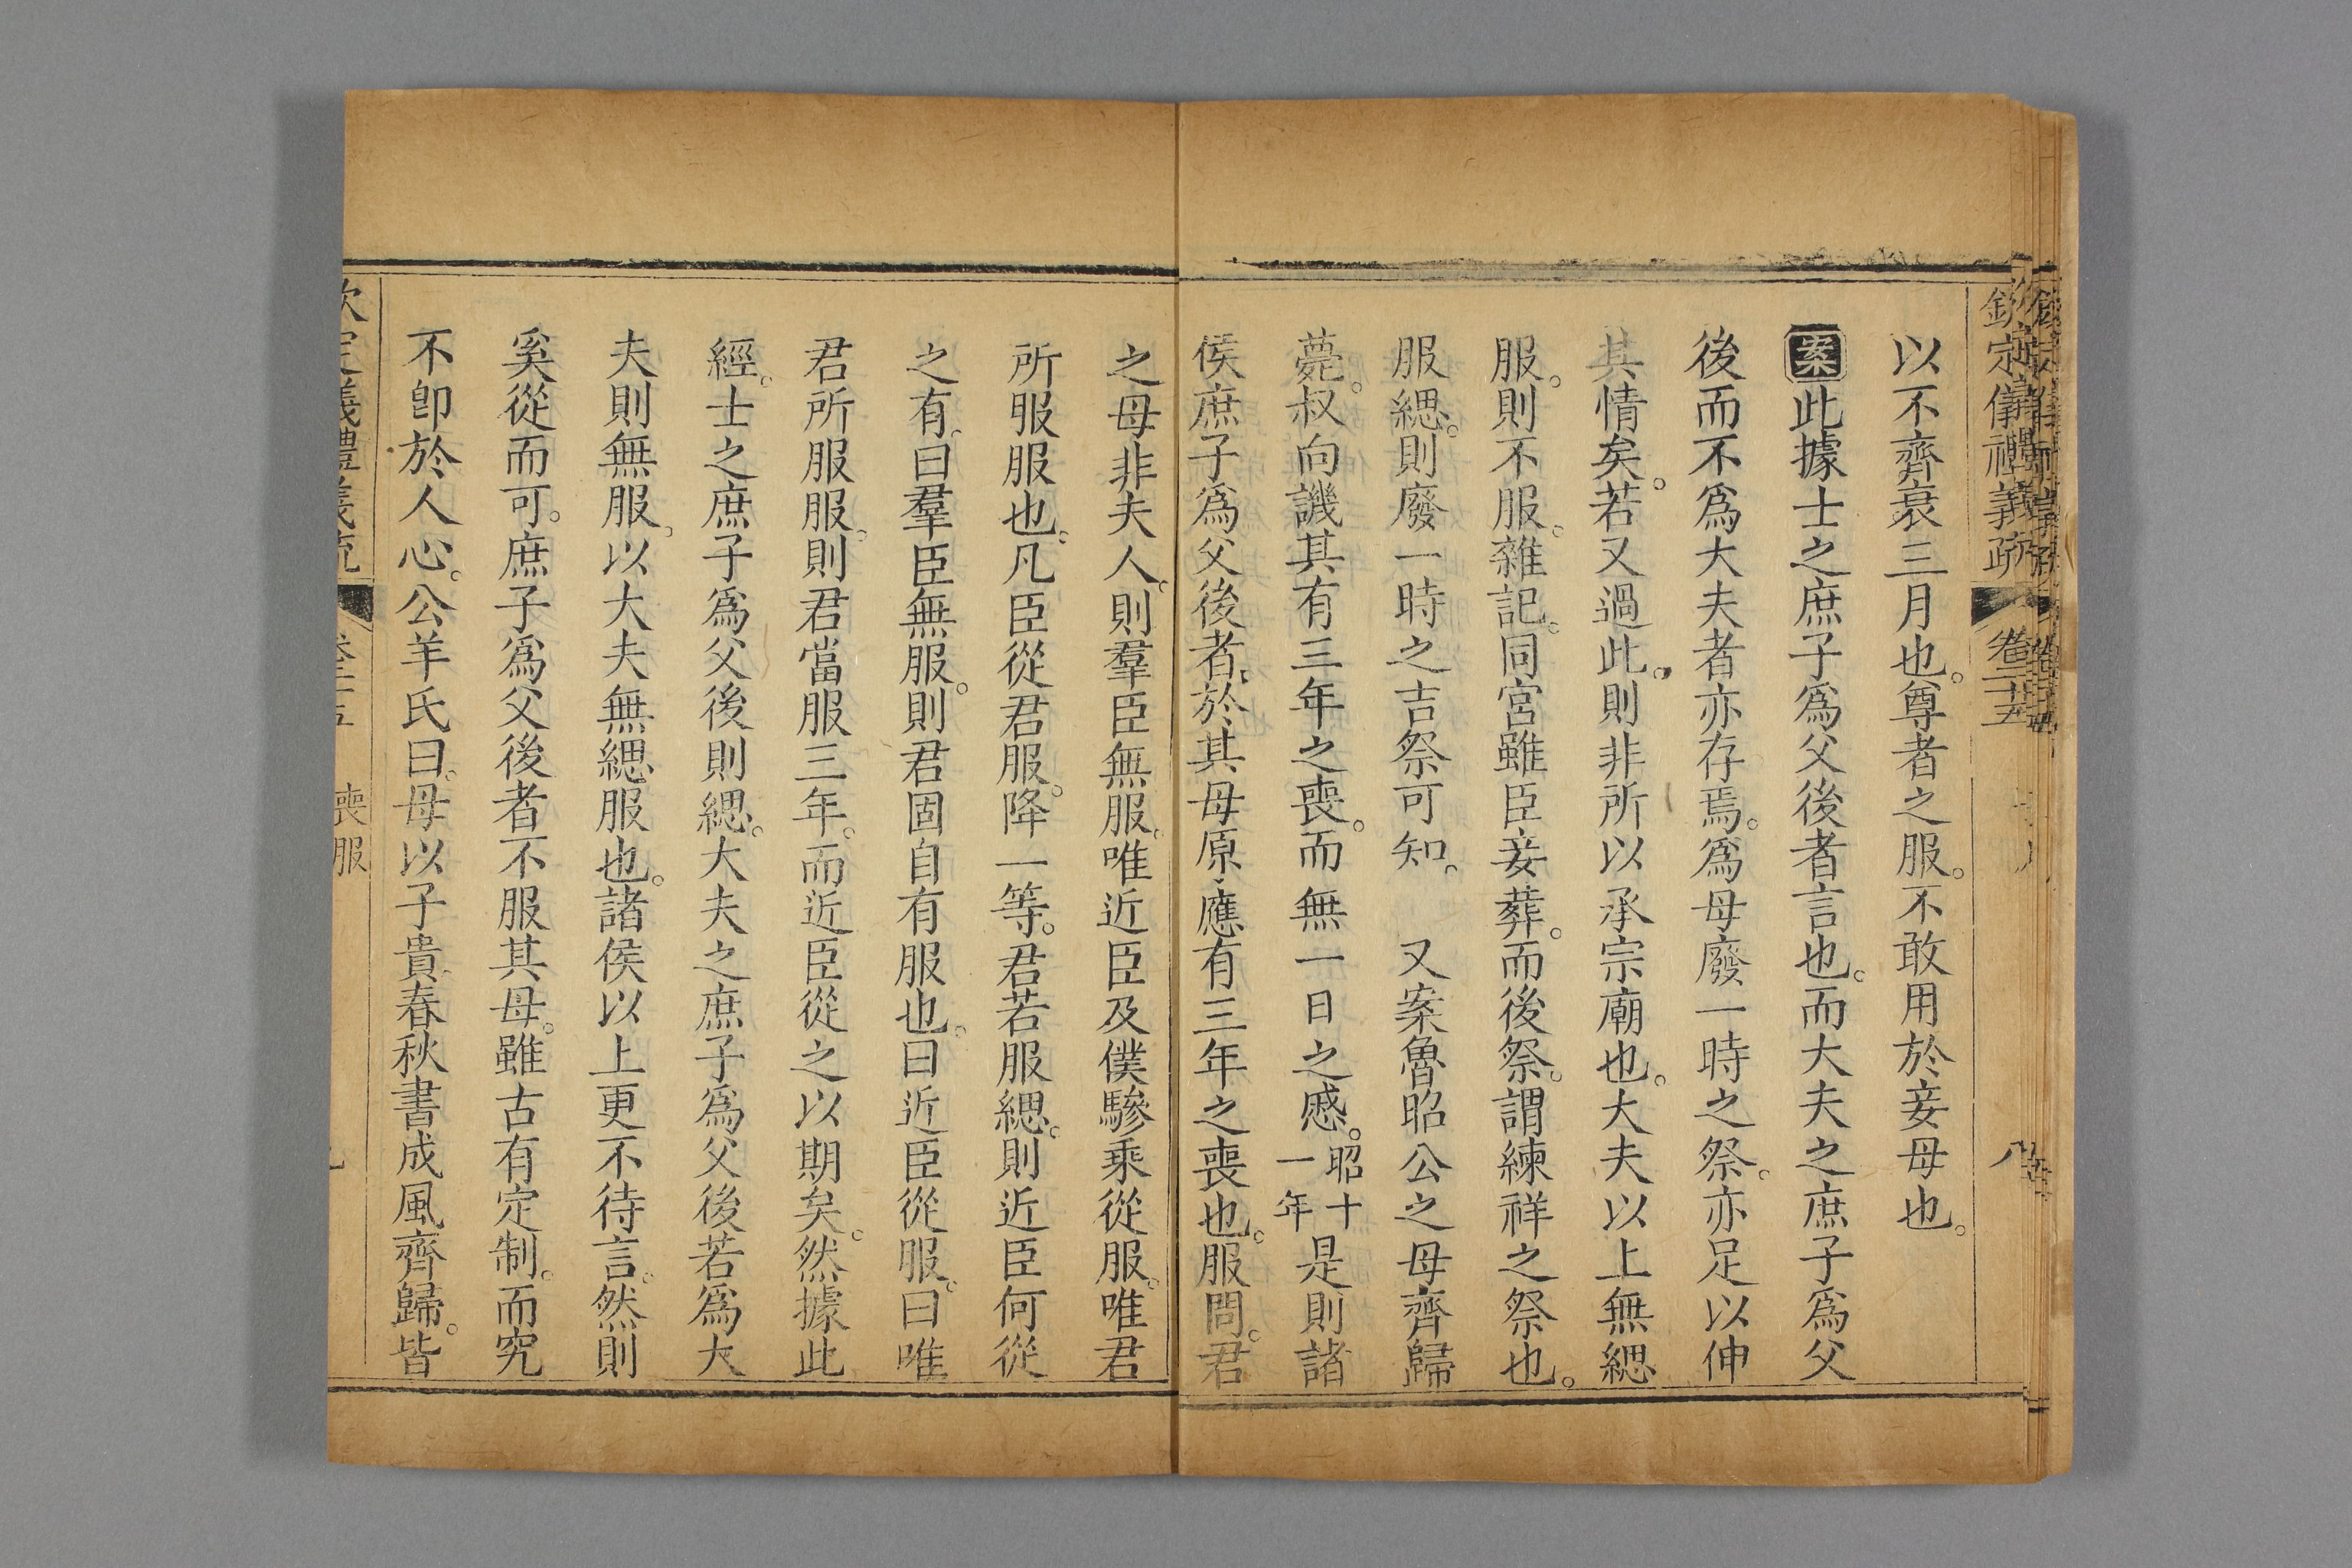 欽定儀禮義疏 卷二十五 八
以不齊衰三月也。尊者之服。不敢用於妾母也。
案此據士之庶子爲父後者言也。而大夫之庶子爲父
後而不爲大夫者亦存焉。爲母廢一時之祭。亦足以伸
其情矣。若又過此。則非所以承宗廟也。大夫以上無緦
服。則不服。雜記。同宮雖臣妾葬。而後祭。謂練祥之祭也。
服緦。則廢一時之吉祭可知。 又案魯昭公之母齊歸
薨。叔向譏其有三年之喪。而無一日之慼。昭十一年是則諸
侯庶子爲父後者。於其母原應有三年之喪也。服問。君
之母非夫人。則羣臣無服。唯近臣及僕驂乘從服。唯君
所服服也。凡臣從君服。降一等。君若服緦。則近臣何從
之有。曰羣臣無服。則君固自有服也。曰近臣從服。曰唯
君所服服。則君當服三年。而近臣從之以期矣。然據此
經。士之庶子爲父後則緦。大夫之庶子爲父後若爲大
夫則無服。以大夫無緦服也。諸侯以上更不待言。然則
奚從而可。庶子爲父後者不服其母。雖古有定制。而究
不卽於人心。公羊氏曰。母以子貴春秋書成風齊歸。皆
欽定儀禮義疏 卷二十五 喪服